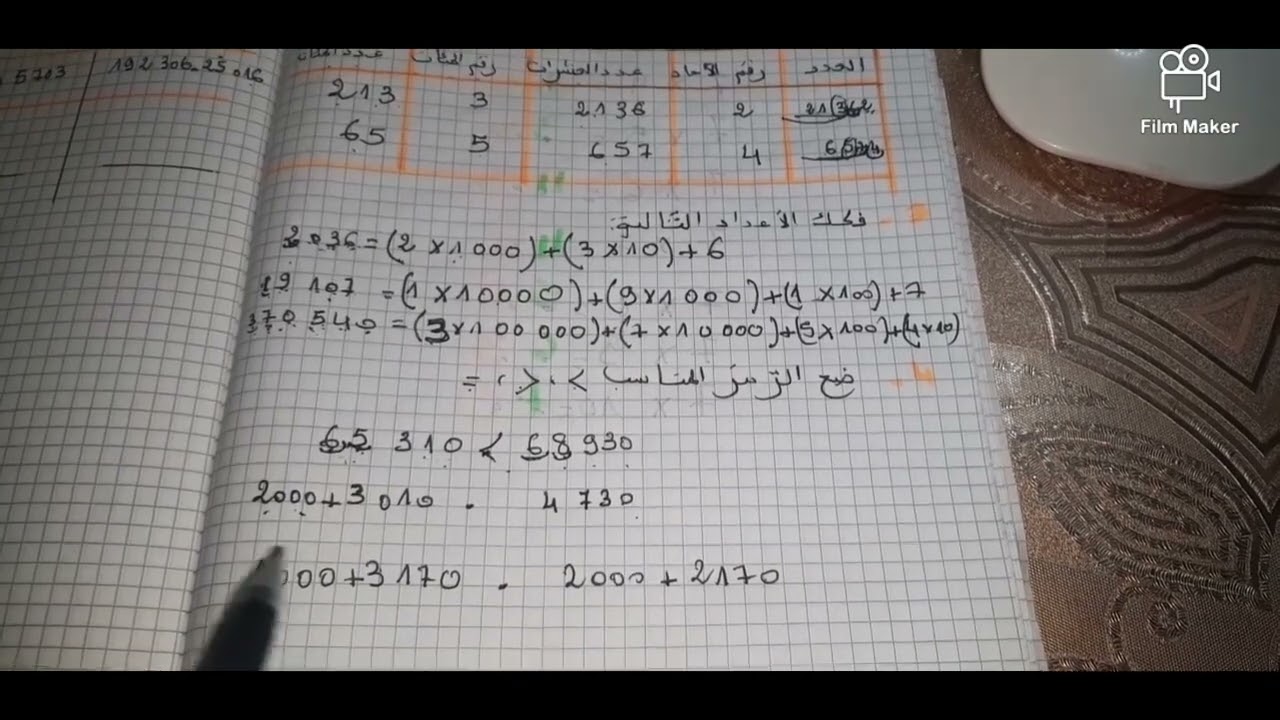 5703 192 306 - 25 016
العدد رقم الآحاد عدد العشرات رقم المئات عدد المئات
2 2136 3 213
4 657 5 65
فكك الأعداد التالية:
2 036 = (2 × 1 000) + (3 × 10) + 6
19 107 = (1 × 10000) + (9 × 1 000) + (1 × 100) + 7
370 540 = (3 × 100 000) + (7 × 10 000) + (5 × 100) + (4 × 10)
4 - ضع الرمز المناسب > ، < ، =
65 310 < 68 930
2000 + 3 010 . 4 730
000 + 3 170 . 2000 + 2170
Film Maker